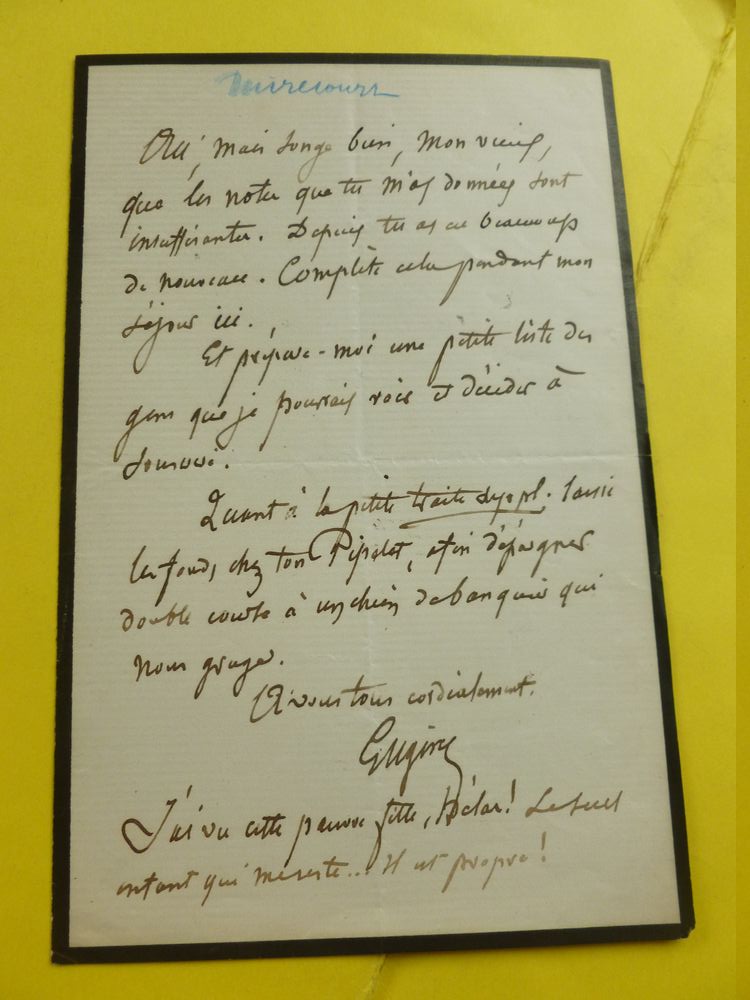 Mirecourt
Oui, mais songe bien, mon vieux,
que les notes que tu m'as données sont
insuffisantes. Depuis tu as eu beaucoup
de nouveau. Complète cela pendant mon
séjour ici.
Et prépare-moi une petite liste des
gens que je pourrais voir et décider à
souscri.
Quant à la petite traite
les fonds chez ton Pipelet, afin d'épargner
double course à un chien de banquier qui
nous gruge.
A vous tous cordialement.
Eugène
J'ai vu cette pauvre fille, hélas! Le seul
enfant qui me reste... Il est propre!